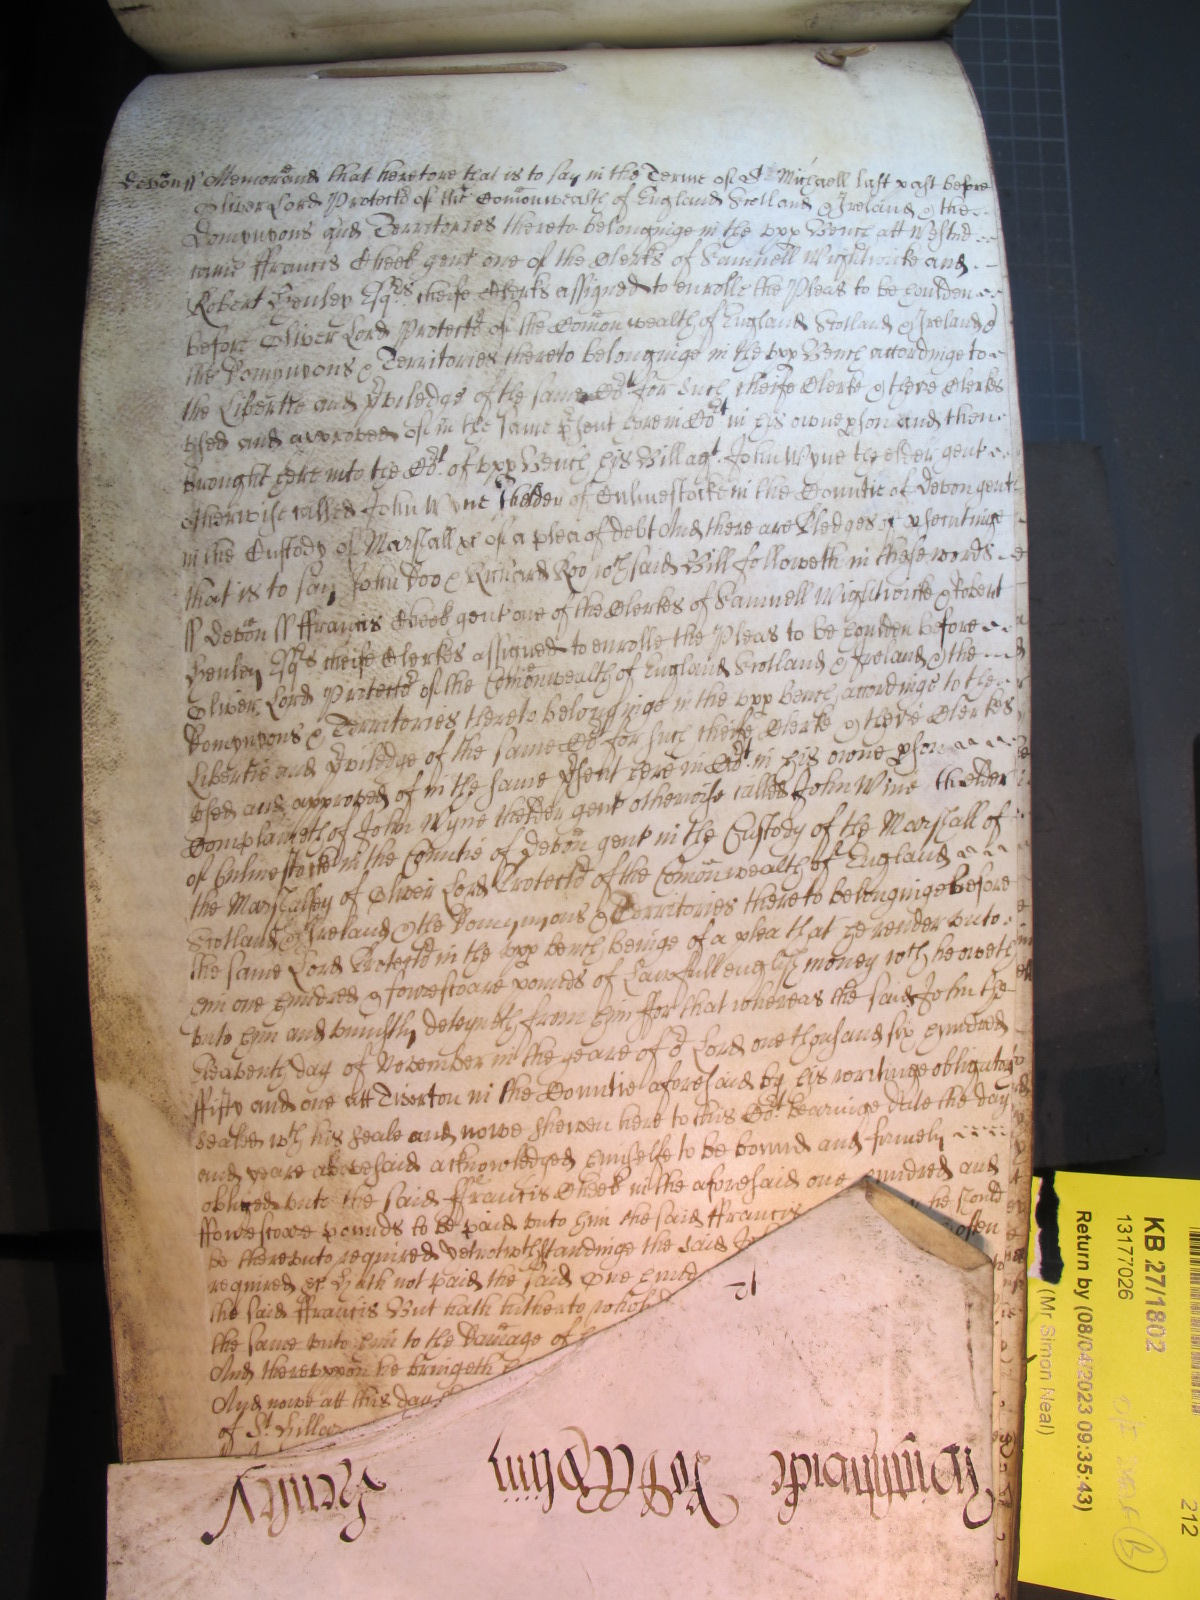 Devon ss Memorand that heretofore that is to say in the Terme of St Michaell last past before
Oliver Lord Protector of the Comonwealth of England Scotland & Ireland & the
Domynyons and Territories thereto belonginge in the upp Bench att Westmr
came Ffrancis Cheek gent one of the Clerks of Samuell Wightwicke and
Robert Henley Esqrs cheife Clerks assigned to enrolle the Pleas to be houlden
before Oliver Lord Protector of the Comon wealth of England Scotland & Ireland &
the Domynyons & Territories thereto belonginge in the upp Bench accordinge to
the Libertie and Priviledge of the same Cort for such cheife Clerke & theire Clerks
used and approved of in the same Present here in Cort in his owne pson and then
brought here into the Cort of upp Bench his Bill agt John Wyne the elder gent
otherwise called John Wyne thelder of Culmestocke in the Countie of Devon gent
in the Custody of Marshall &c of a plea of debt And there are Pledges of psecutinge
that is to say John Doo & Richard Roo wch said Bill followeth in these words
ss Devon ss Ffrancis Cheek gent one of the Clerkes of Samuell Wightwicke & Robert
Henley Esqrs cheife Clerkes assigned to enrolle the Pleas to be houlden before
Oliver Lord Protector of the Comonwealth of England Scotland & Ireland & the
Domynyons & Territories thereto belonginge in the upp bench accordinge to the
Libertie and Priviledge of the same Cort for such cheife Clerke & theire Clerkes
used and approved of in the same Psent here in Cort in his owne pson
Complaineth of John Wyne thelder gent otherwise called John Wine thelder
of Culmestocke in the Countie of Devon gent in the Custody of the Marshall of
the Marshalsey of Oliver Lord Protector of the Comonwealth of England
Scotland & Ireland & the Domynyons & Territories thereto belonginge before
the same Lord Protector in the upp bench beinge of a plea that he render unto
him one hundred & fowrescoare pounds of Lawfull english money wch he oweth
unto him and uniustly deteyneth from him ffor that whereas the said John the
Eleaventh day of November in the yeare of or Lord one thousand six hundred
ffifty and one att Tiverton in the Countie aforesaid by his writinge obligatory
sealed wth his seale and nowe shewen here to this Cort bearinge date the day
and yeare abovesaid acknowledged himselfe to be bound and firmely
obliged unto the said Ffrancis Cheek in the aforesaid one hundred and
ffowrescoare pounds to be paid unto him the said Ffrancis he should
be thereunto required Notwithstandinge the said Jo often
required &c hath not paid the said one hund
the said Ffrancis But hath hitherto wholy
the same unto him to the damage of
And thereuppon he bringeth
And nowe att this day
of St Hilla
12
Wightwicke Henley
KB 27/1802
13177026
Return by (08/04/2023 09:35:43)
(Mr Simon Neal)
212